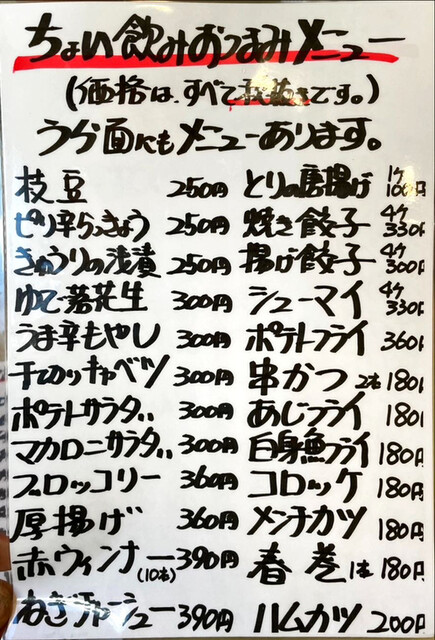 ちょい飲みおつまみメニュー
(価格は、すべて税抜きです。)
うら面にもメニューあります。
枝豆 250円
ピリ辛らっきょう 250円
きゅうりの浅漬 250円
ゆで落花生 300円
うま辛もやし 300円
手でちぎりキャベツ 300円
ポテトサラダ 300円
マカロニサラダ 300円
ブロッコリー 360円
厚揚げ 360円
赤ウィンナー(10本) 390円
ねぎチャーシュー 390円
とりの唐揚げ 1ケ 100円
焼き餃子 4ケ 330円
揚げ餃子 4ケ 300円
シューマイ 4ケ 330円
ポテトフライ 360円
串かつ 2本 180円
あじフライ 180円
白身魚フライ 180円
コロッケ 180円
メンチカツ 180円
春巻 1本 180円
ハムカツ 200円